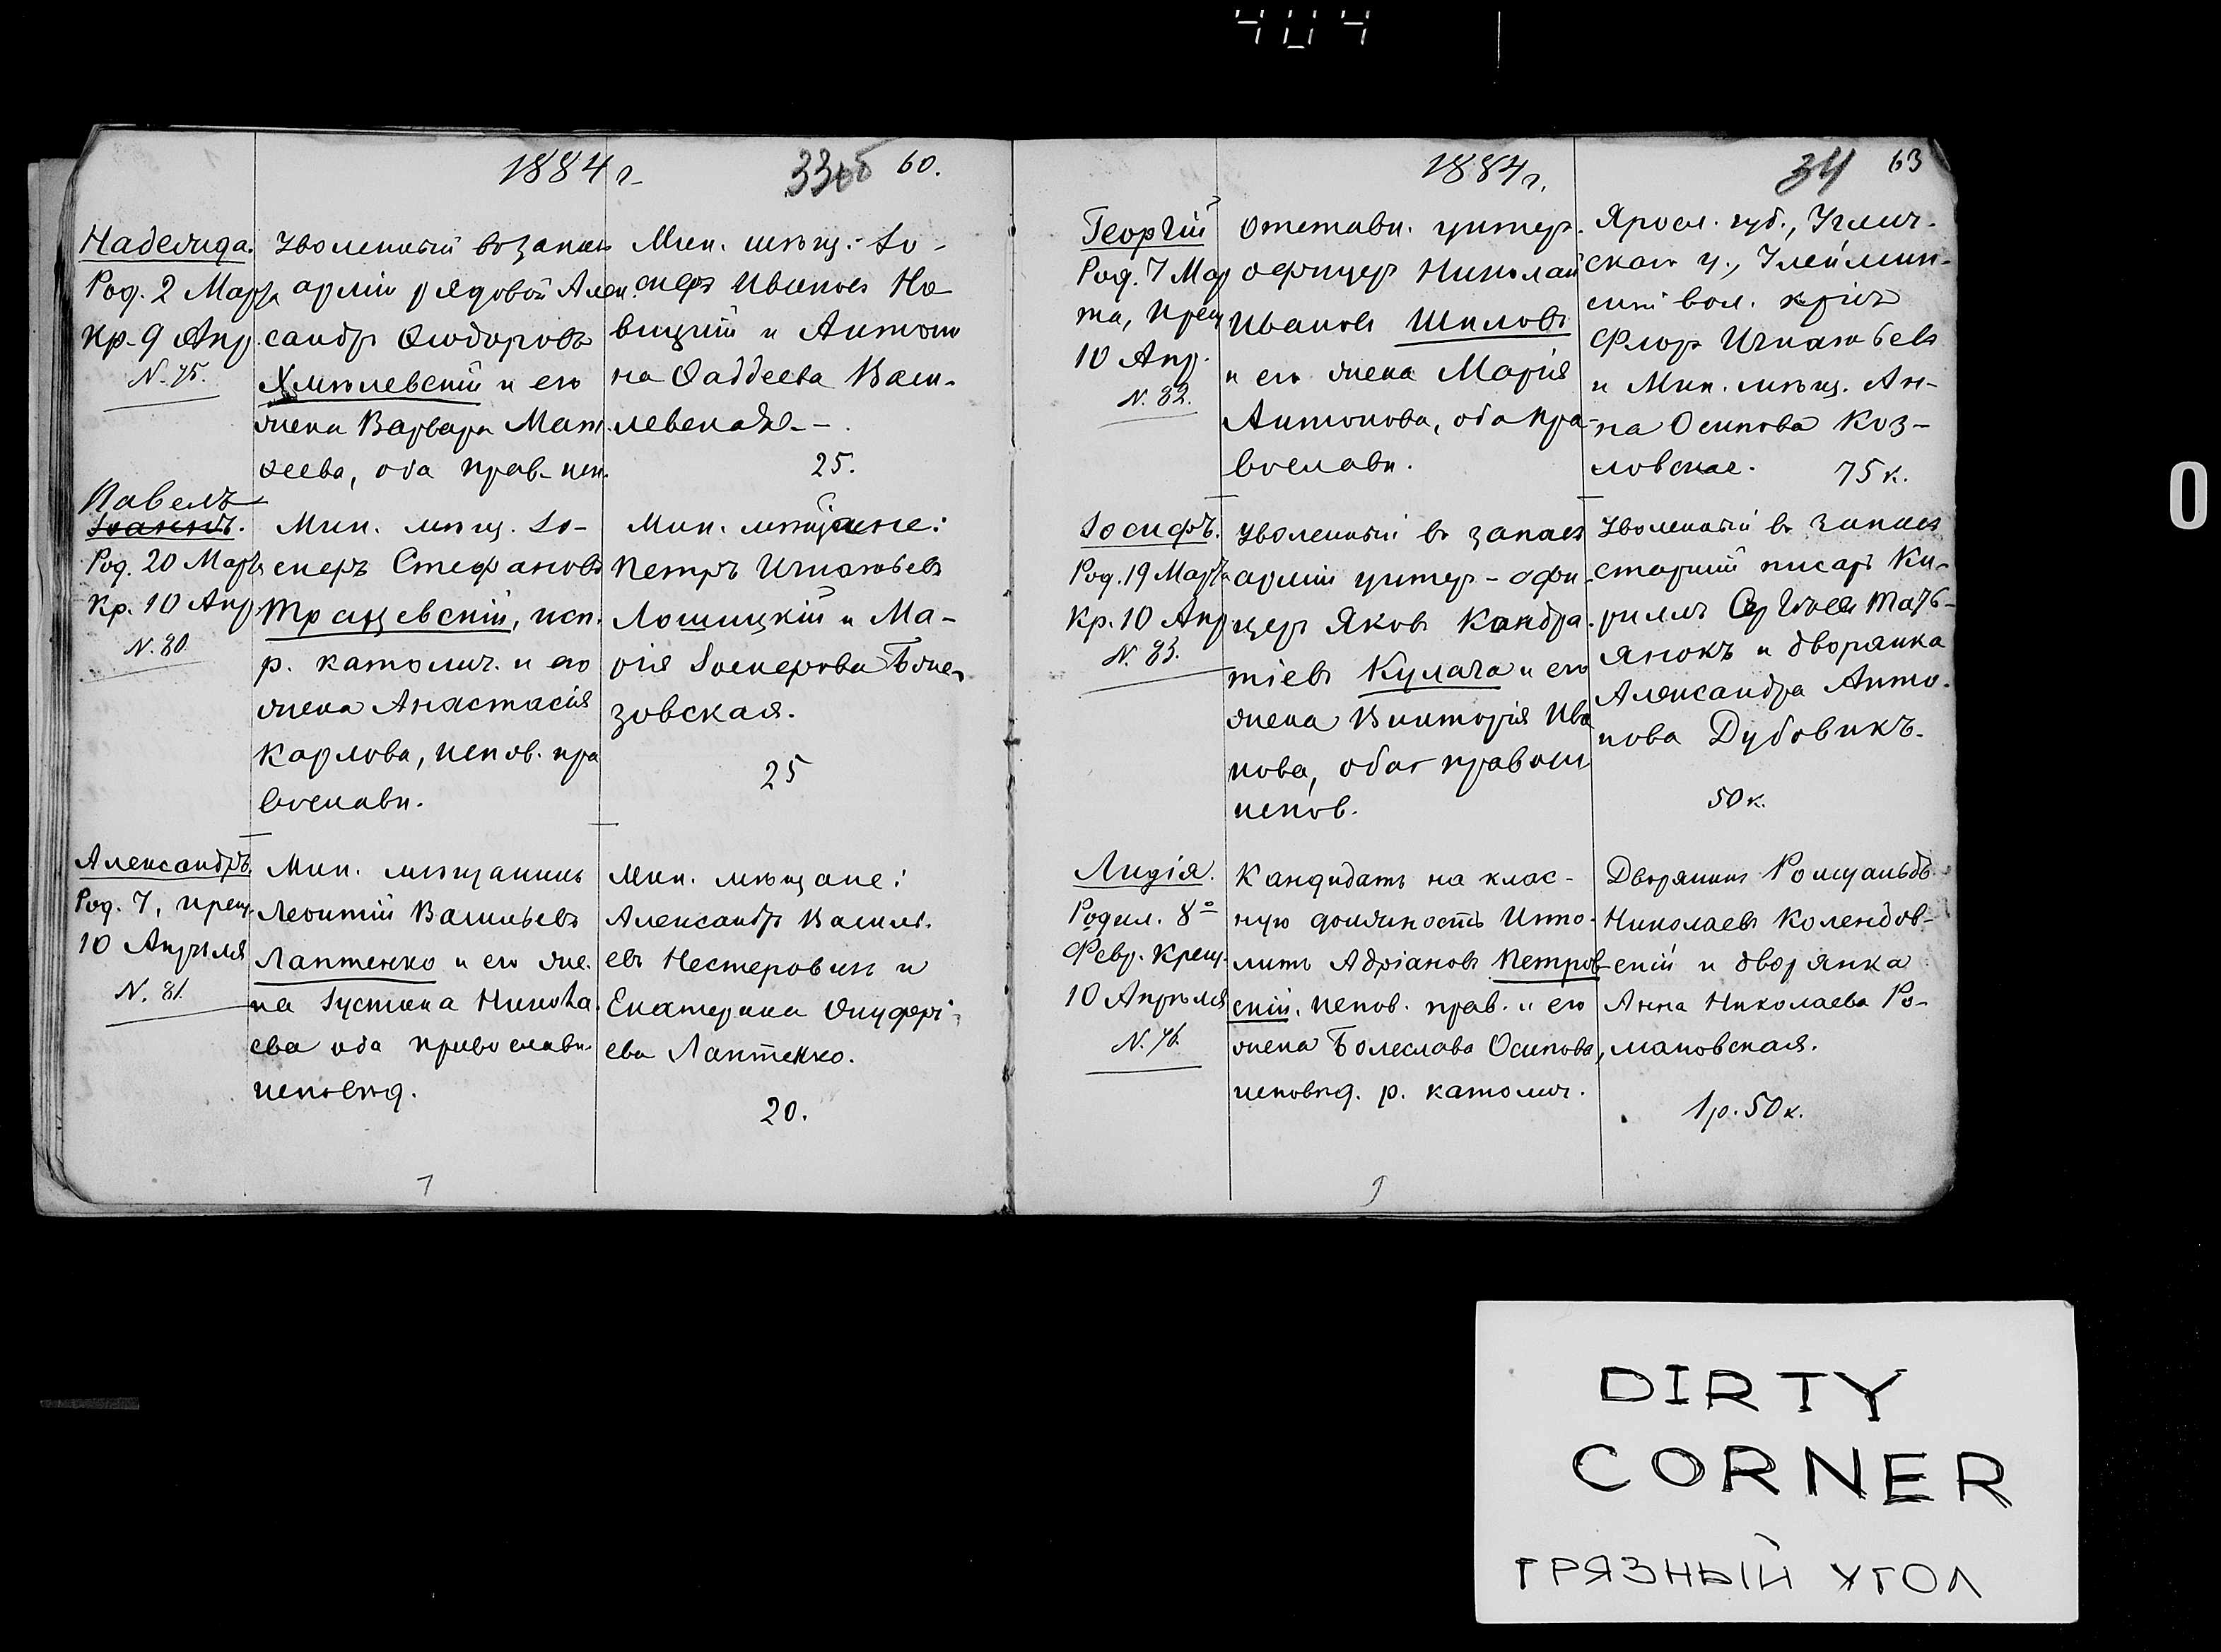 404
1884 г.
33об 60.
Надежда.
Род. 2 Марта
Кр. 9 Апр.
N. 75.
Уволенный въ запасъ
арміи рядовой Алек
сандръ Ѳіодоровъ
Хмѣлевскій и его
жена Варвара Мат
ѳеева, оба прав. исп.
Мин. мѣщ. Іо-
сифъ Ивановъ Но
вицкій и Антони
на Ѳаддеева Васи-
левская.
25.
Павелъ
Іоаннъ.
Род. 20 Марта
Кр. 10 Апр
N. 80
Мин. мѣщ. Іо-
сифъ Стефановъ
Трацевскій, исп.
р. католич. и его
жена Анастасія
Карлова, испов. пра
вославн.
Мин. мѣщане:
Петръ Игнатьевъ
Лошицкій и Ма-
рія Іосифова
зовская.
25
Александръ.
Род. 7, крещ.
10 Апрѣля
N. 81.
Мин. мѣщанинъ
Леонтій Васильевъ
Лаптенко и его же-
на Іустина Никола-
ева оба православн.
исповѣд.
Мин. мѣщане:
Александръ Василь-
евъ Нестеровичъ и
Екатерина Онуфрі-
ева Лаптенко.
20.
1884 г.
34 63
Георгій
Род. 7 Мар
та, крещ
10 Апр.
N. 82.
Отставн. унтер-
офицеръ Николай
Ивановъ Шиловъ
и его жена Марія
Антонова, оба пра-
вославн.
Яросл. губ., Углич-
скаго у.,
ской вол. кр–нъ
Флоръ Игнатьевъ
и Мин. мѣщ. Ан-
на Осипова Коз-
ловская.
75 к.
Іосифъ.
Род. 19 Марта
Кр. 10 Апр
N. 83.
Уволенный въ запасъ
арміи унтер-офи-
церъ Яковъ Кондра-
тіевъ Кулага и его
жена Викторія Ива
нова, оба православ
испов.
Уволенный въ запасъ
старшій писарь Ки-
риллъ
янокъ и дворянка
Александра Анто-
нова Дубовикъ.
50 к.
Лидія.
Родил. 8го
Февр. Крещ.
10 Апрѣля
N. 76
Кандидатъ на клас-
ную должность Иппо-
литъ Адріановъ Петров-
скій, испов. прав. и его
жена Болеслава Осипова,
исповѣд. р. католич.
Дворянинъ Ромуальдъ
Николаевъ Колендов-
скій и дворянка
Анна Николаева Ро-
мановская.
1 р. 50 к.
0
DIRTY
CORNER
ГРЯЗНЫЙ УГОЛ